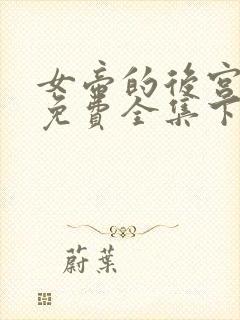 女帝的後宮
免費全集下
蔚葉